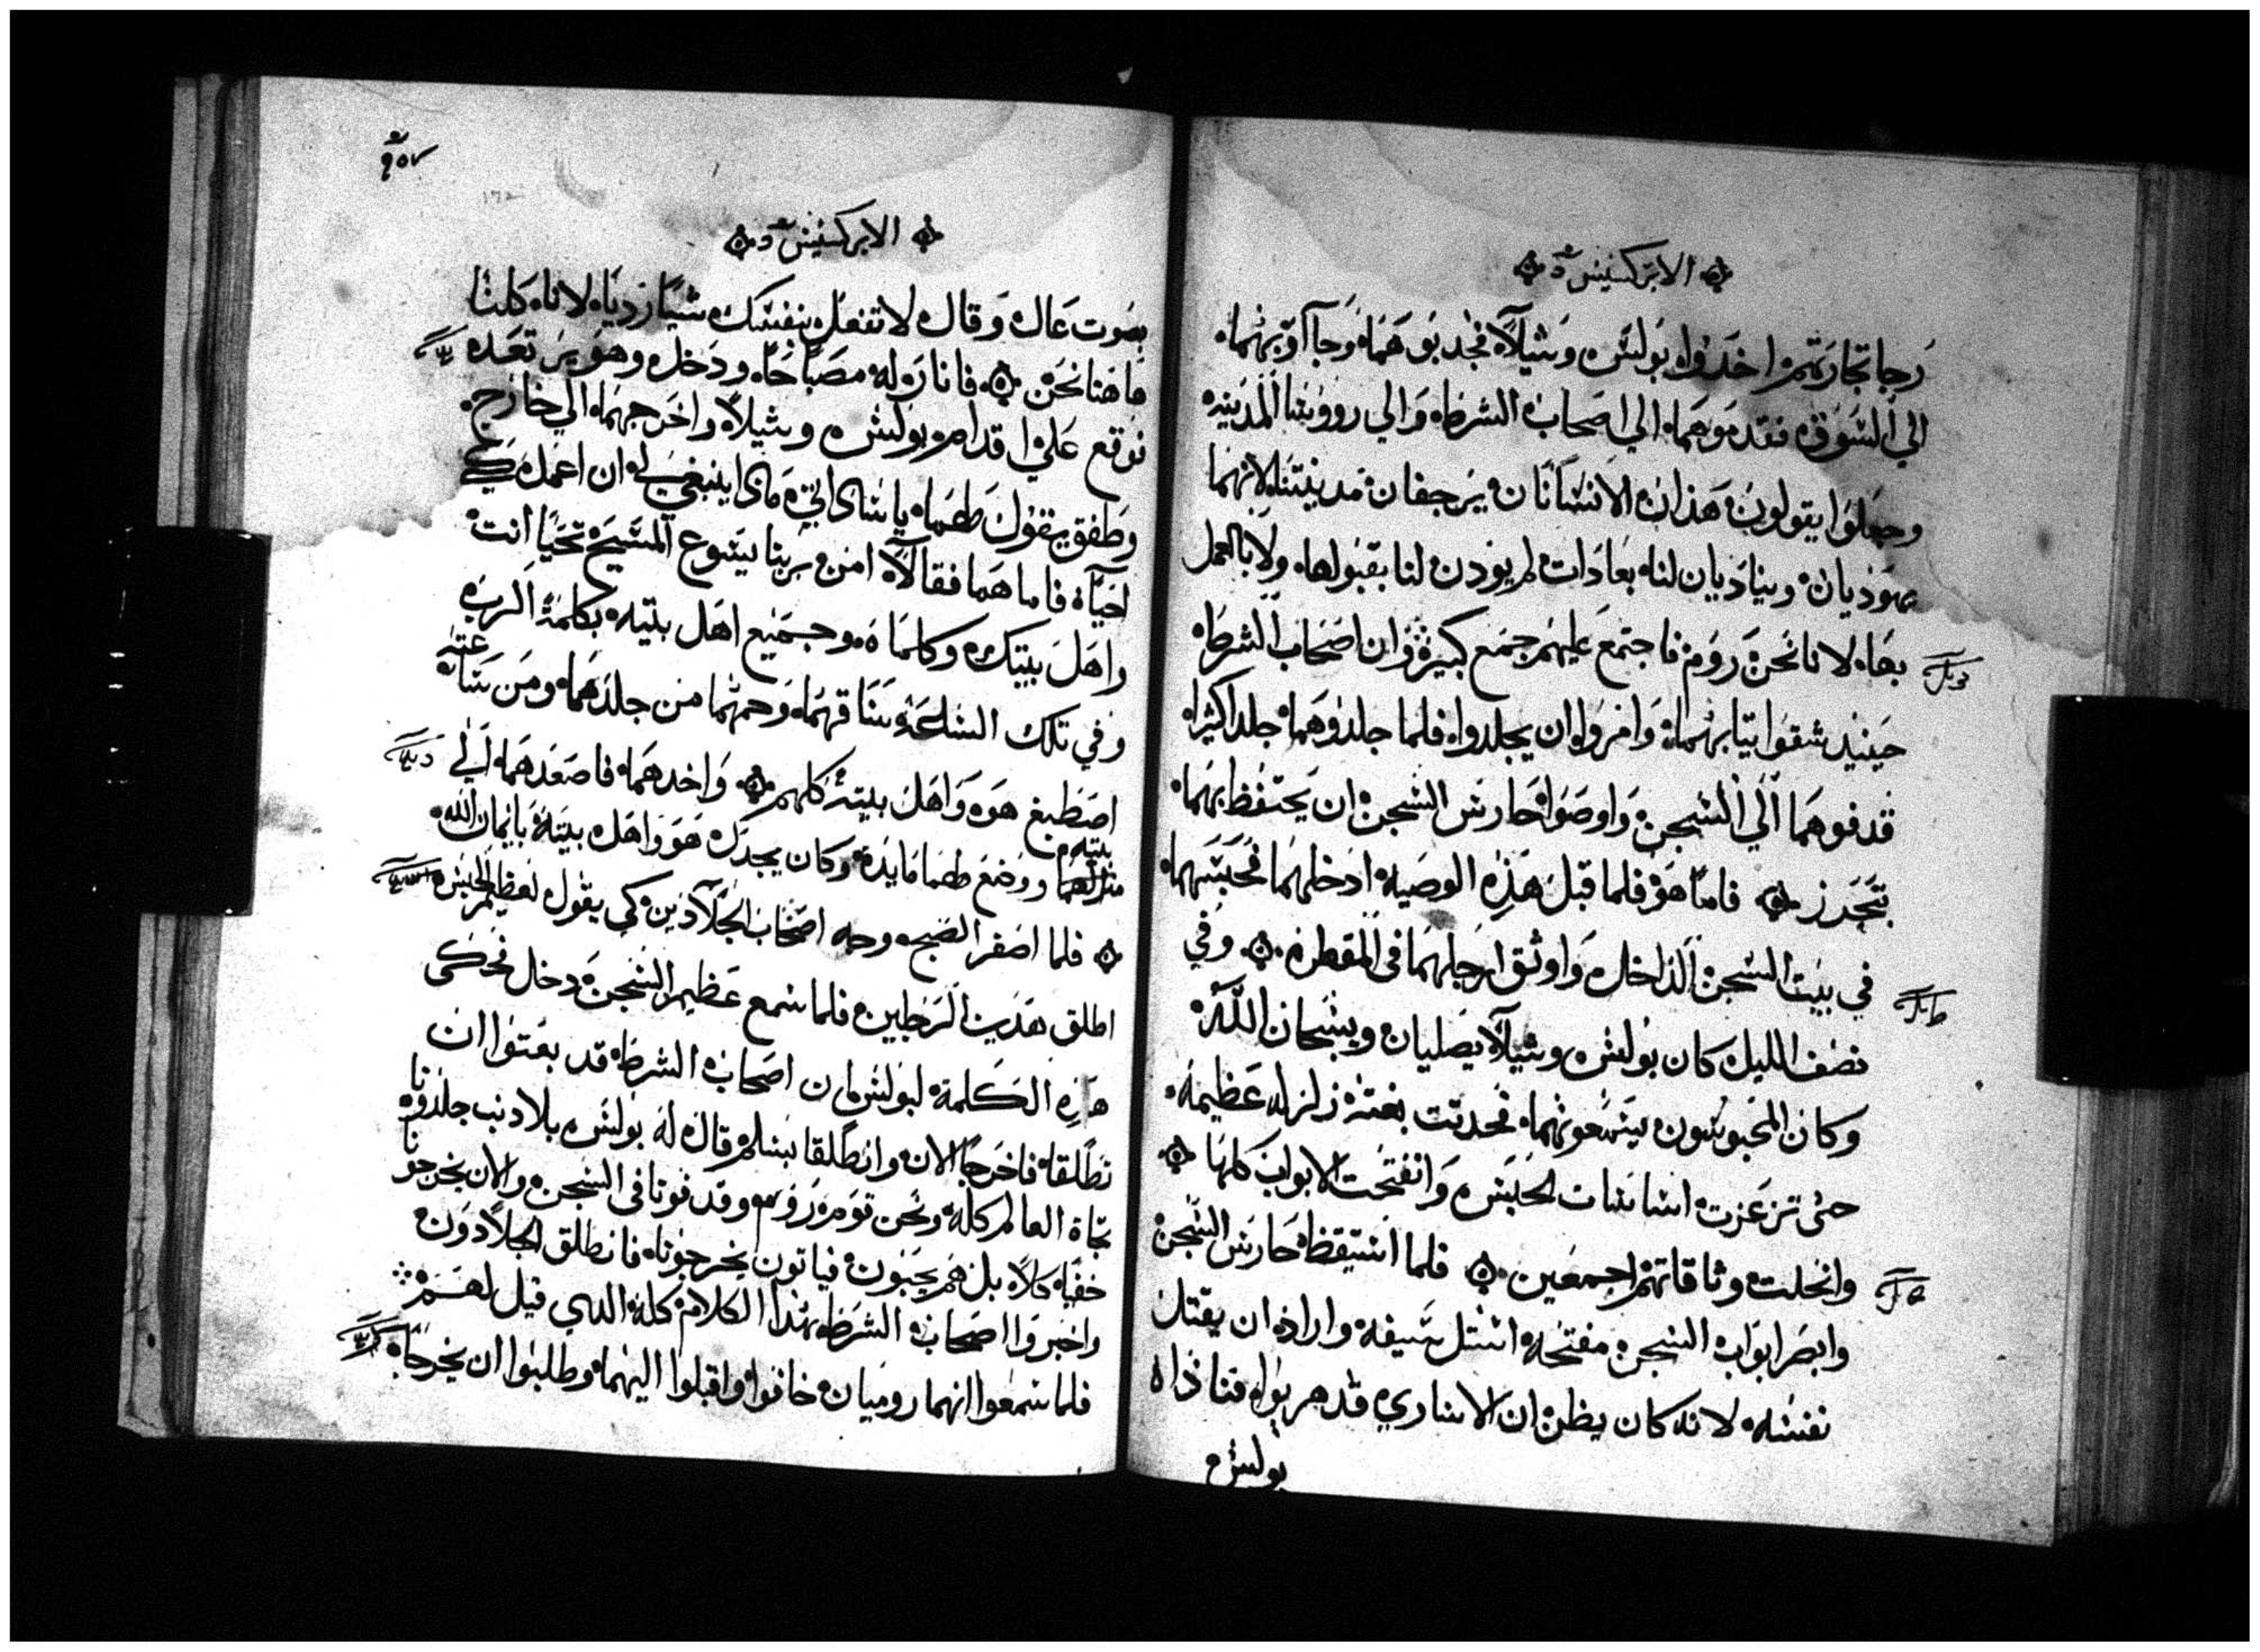 الابركسيس
رجا تجارتهم اخدوا بولس وشيلا فجدبوهما وجآاو بهما
الي السوق فقدموهما الي اصحاب الشرطه والي رووسا المدينه
وجعلوا يقولون هذان الانسانان يرجفان مدينتنا لانهما
يهوديان ويناديان لنا بعادات لم يودن لنا بقبولها ولا بالعمل
بها لانا نحن روم فاجتمع عليهم جمع كبير وان اصحاب الشرطه
حينيد شقوا تيابهما وامروا ان يجلدوا فلما جلدوهما جلدا كثيرا
قدفوهما الي السجن واوصوا حارس السجن ان يحتفظ بهما
بتحرز فاما هو فلما قبل هذه الوصيه ادخلهما فحبسهما
في بيت السجن الداخل واوثق ارجلهما في المقطره وفي
نصف الليل كان بولس وشيلا يصليان ويسبحان الله
وكان المحبوسون يتسمعونهما فحدتت بغته زلزله عظيمه
حتى تزعزت اساسات الحبس وانفتحت الابواب كلها
وانحلت وثاقاتهم اجمعين فلما استيقظ حارس السجن
وابصر ابواب السجن مفتحه استل سيفه واراد ان يقتل
نفسه لانه كان يظن ان الاساري قد هربوا فناداه
بولس
١٥٧
172
الابركسيس
بصوت عال وقال لا تفعل بنفسك شيا رديا لانا كلنا
هاهنا نحن فانار له مصباحا ودخل وهو يرتعد
فوقع علي اقدام بولس وشيلا واخرجهما الي خارج
وطفق يقول لهما يا سادتي مادا ينبغي لي ان اعمل كي
احيا فاما هما فقالا امن بربنا يسوع المسيح تحيا انت
واهل بيتك وكلماه وجميع اهل بيته بكلمة الرب
وفي تلك الساعه ساقهما وحمهما من جلدهما ومن ساعته
اصطبغ هو واهل بيته كلهم واخدهما فاصعدهما الي
بيته
منزلهما ووضع لهما مايده وكان يجدل هو واهل بيته بايمان الله
فلما اصفر الصبح وجه اصحاب الجلادين كي يقول لعظيم الحبس
اطلق هدين الرجلين فلما سمع عظيم السجن دخل فحكى
هذه الكلمة لبولس ان اصحاب الشرط قد بعتوا ان
تطلقا فاخرجا الان وانطلقا بسلام قال له بولس بلا دنب جلدونا
تجاه العالم كله ونحن قوم روم وقدفونا في السجن والان يخرجونا
خفيا كلا بل هم يجيون فياتون يخرجونا فانطلق الجلادون
واخبروا اصحاب الشرط بهدا الكلام كله الدي قيل لهم
فلما سمعوا انهما روميان خافوا واقبلوا اليهما وطلبوا ان يخرجا